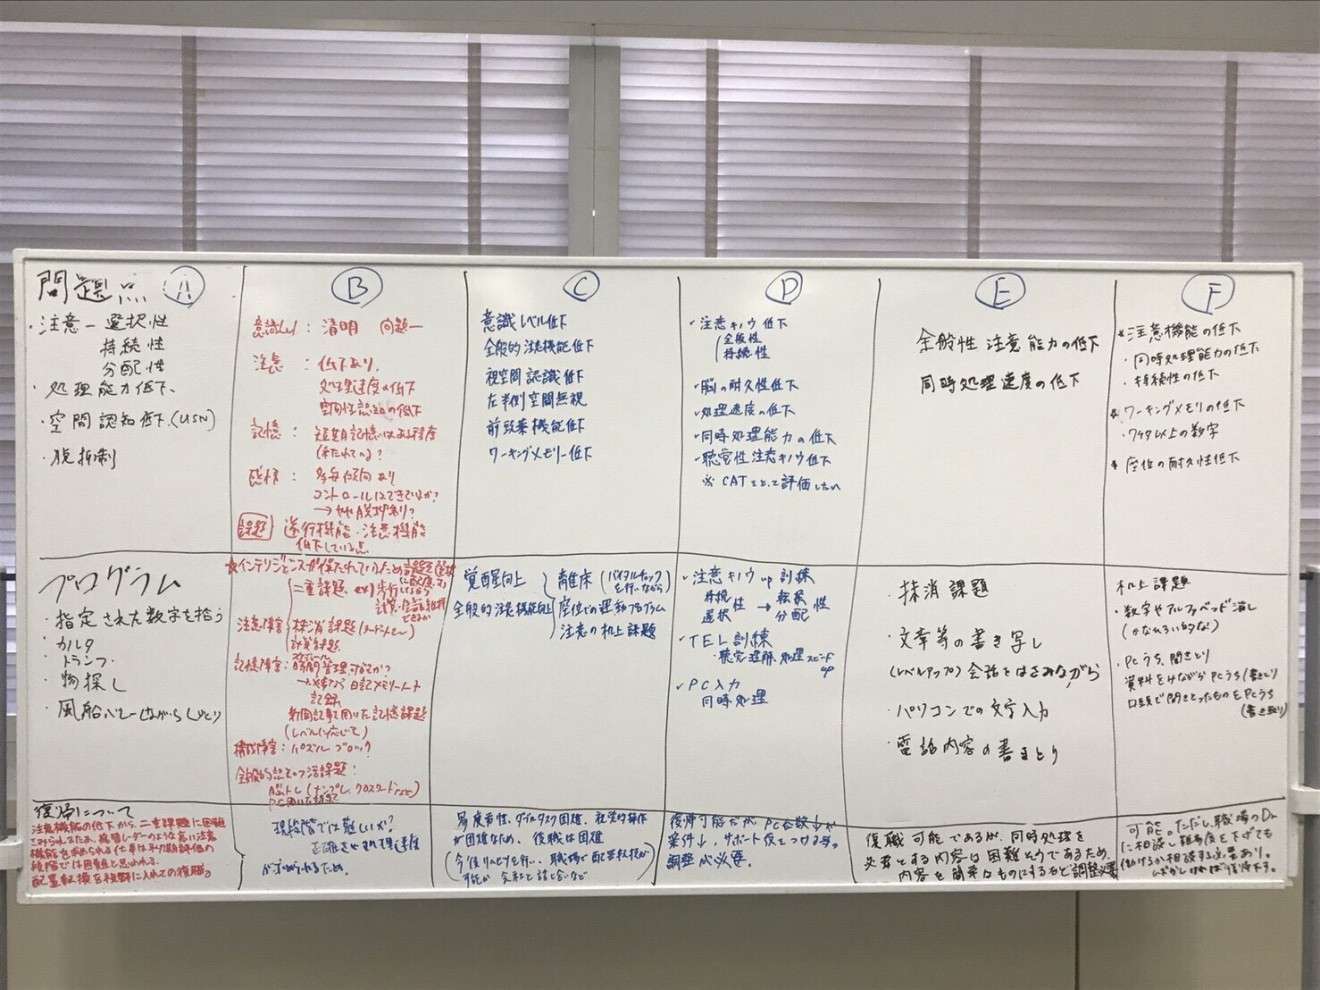 問題点 A
・注意－選択性
持続性
分配性
・処理能力低下、
・空間認知低下、(USN)
・脱抑制
B
意識レベル：清明 問題－
注意：低下あり、
処理速度の低下
空間性認知の低下
記憶：短期記憶はある程度
(保たれている?
感情：多弁傾向あり
コントロールはできているか?
→やや脱抑制?
課題 遂行機能・注意機能
低下している点
C
意識レベル低下
全般的注意機能低下
視空間認識低下
左半側空間無視
前頭葉機能低下
ワーキングメモリー低下
D
・注意キノウ低下
全般性
持続性
・脳の耐久性低下
・処理速度の低下
・同時処理能力の低下
・聴覚性注意キノウ低下
※CATをとって評価したい
E
全般性注意能力の低下
同時処理速度の低下
F
＊注意機能の低下
・同時処理能力の低下
・持続性の低下
＊ワーキングメモリの低下
・7ケタ以上の数字
＊座位の耐久性低下
プログラム
・指定された数字を拾う
・カルタ
・トランプ・
・物探し
・風船バレーしながらしりとり
★インテリジェンスが保たれているため課題を
二重課題、ex) 歩行しながら
注意障害：抹消課題
計算課題
記憶障害：
日記メモリーノート
記録
新聞記事を用いた記憶課題
(レベルに応じて)
構成障害：パズル ブロック
全般的認知面へ課題：
脳トレ(ナンプレ、クロスワードetc)
覚醒向上
全般的注意機能向上
離床(バイタルチェックを行いながら)
座位での運動プログラム
注意の机上課題
・注意キノウup訓練
持続性 → 転換性
選択性 → 分配性
・TEL訓練
・聴覚理解、処理スピードup
・PC入力
同時処理
・抹消課題
・文章等の書き写し
(レベルアップ)会話をはさみながら
・パソコンでの文字入力
・電話内容の書きとり
机上課題
・数字やアルファベッド消し
(かなひろい的な)
・PCうち、聞きとり
資料をみながらPCうち/書きとり
口頭で聞きとったものをPCうち
(書き取り)
復帰について
注意機能の低下から、二重課題に困難
さみられるため、現場リーダーのような高い注意
機能を求められる仕事は初期評価の
段階では困難と思われる。
配置転換を視野に入れての復職。
現段階では難しいか?
正確さやそれて速度
が求められるため。
易疲労性、ダブルタスク困難、社会的操作
が困難なため、復職は困難
(今後リハビリを行い、職場で配置転換が
可能か 会社と話し合いなど
復帰可能だが、PC台数
案件↓、サポート役をつける等。
調整が必要。
復職可能であるが、同時処理を
必要とする内容は困難そうであるため、
内容を簡単なものにするなど調整必要
可能。ただし、職場のDr
に相談し難易度を下げても
働けるか相談する必要あり。